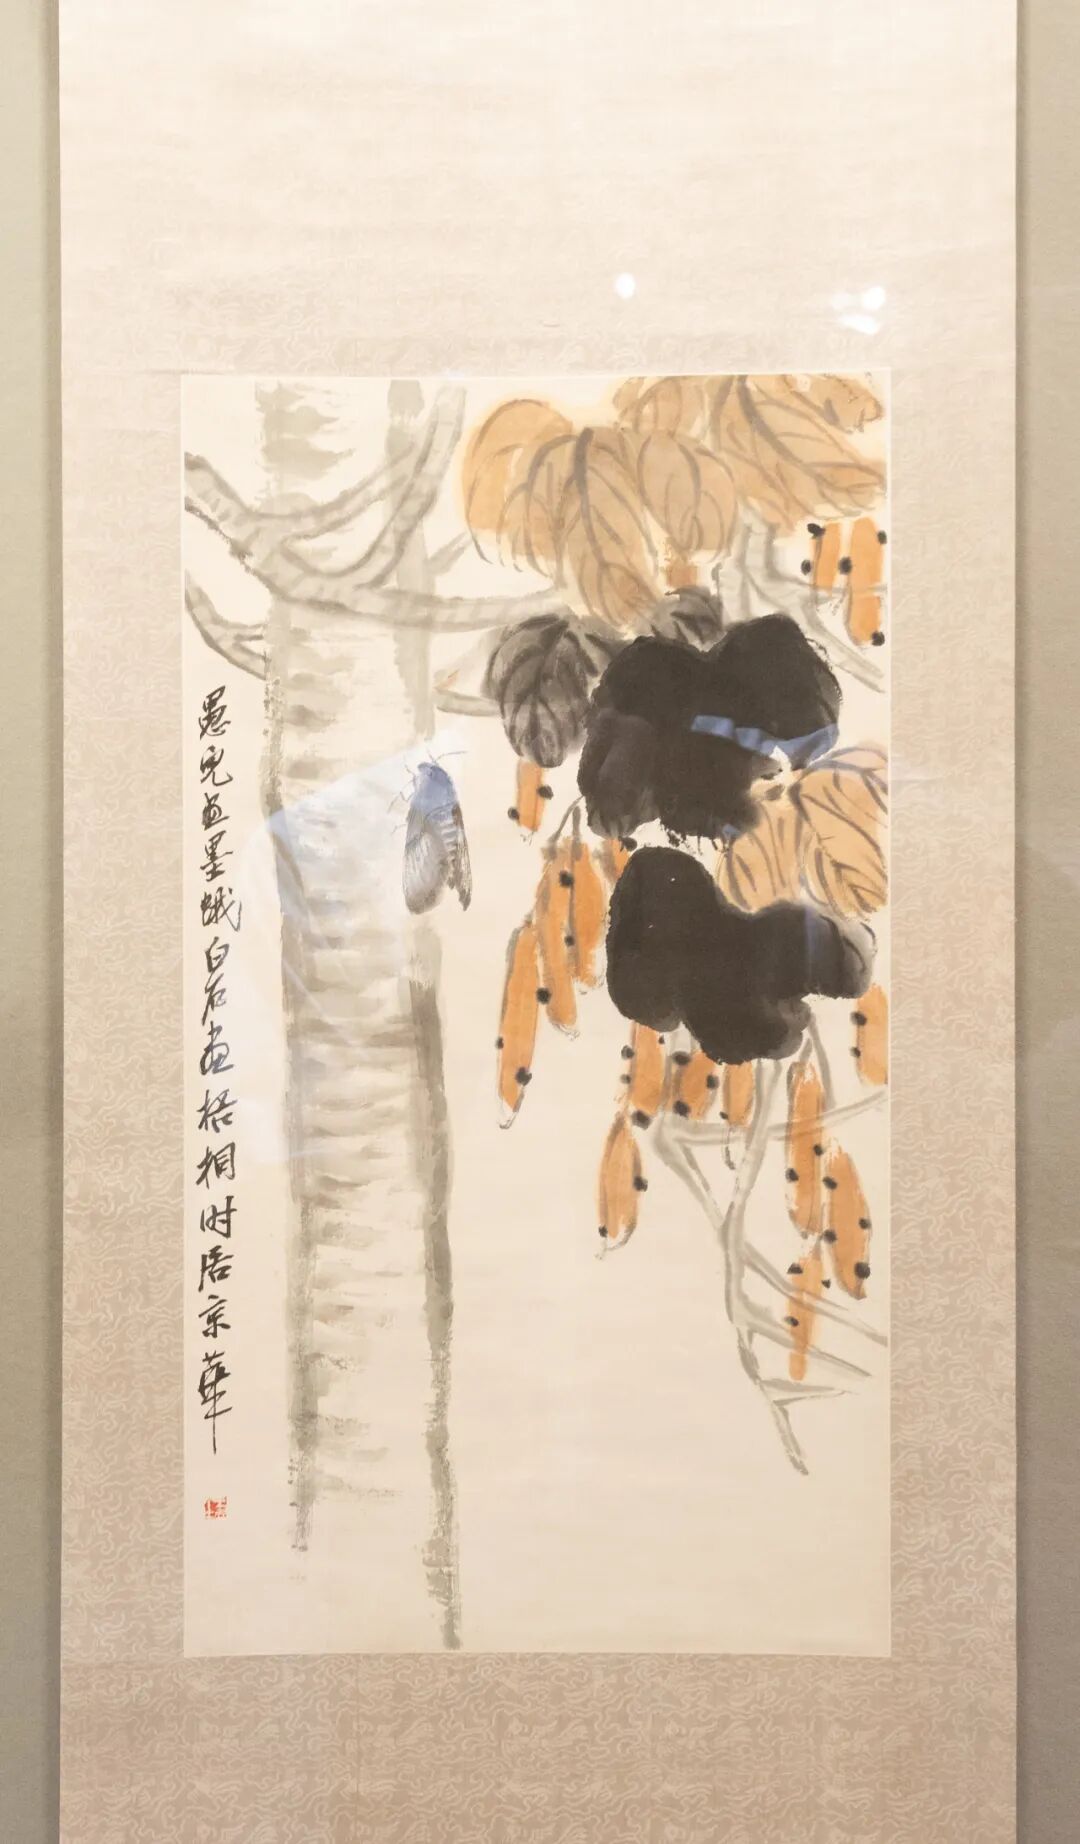 愚兒画墨蛾白石画梧桐时居京華